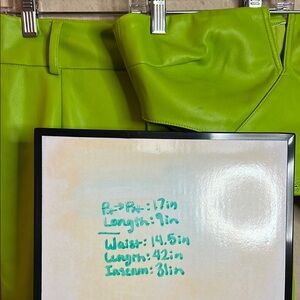 Pit->Pit: 17in
Length: 9in
Waist: 14.5in
Length: 42in
Inseam: 31in